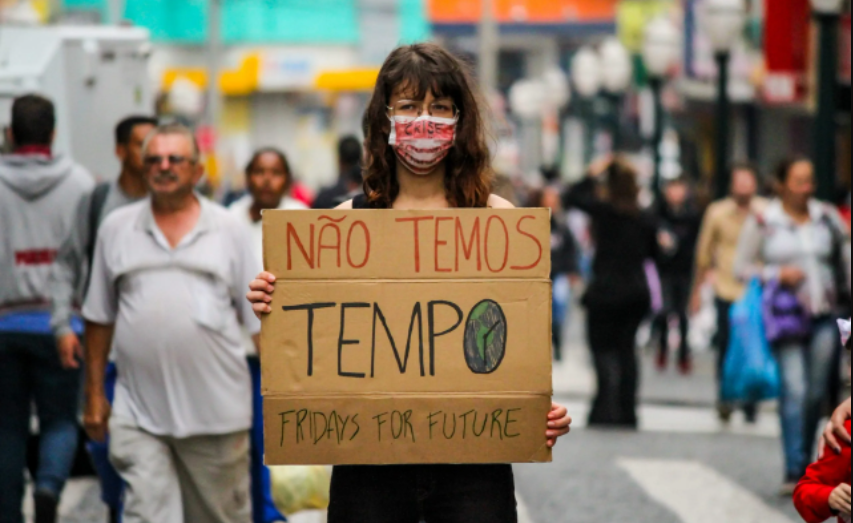 CRISE
NÃO TEMOS
TEMPO
FRIDAYS FOR FUTURE